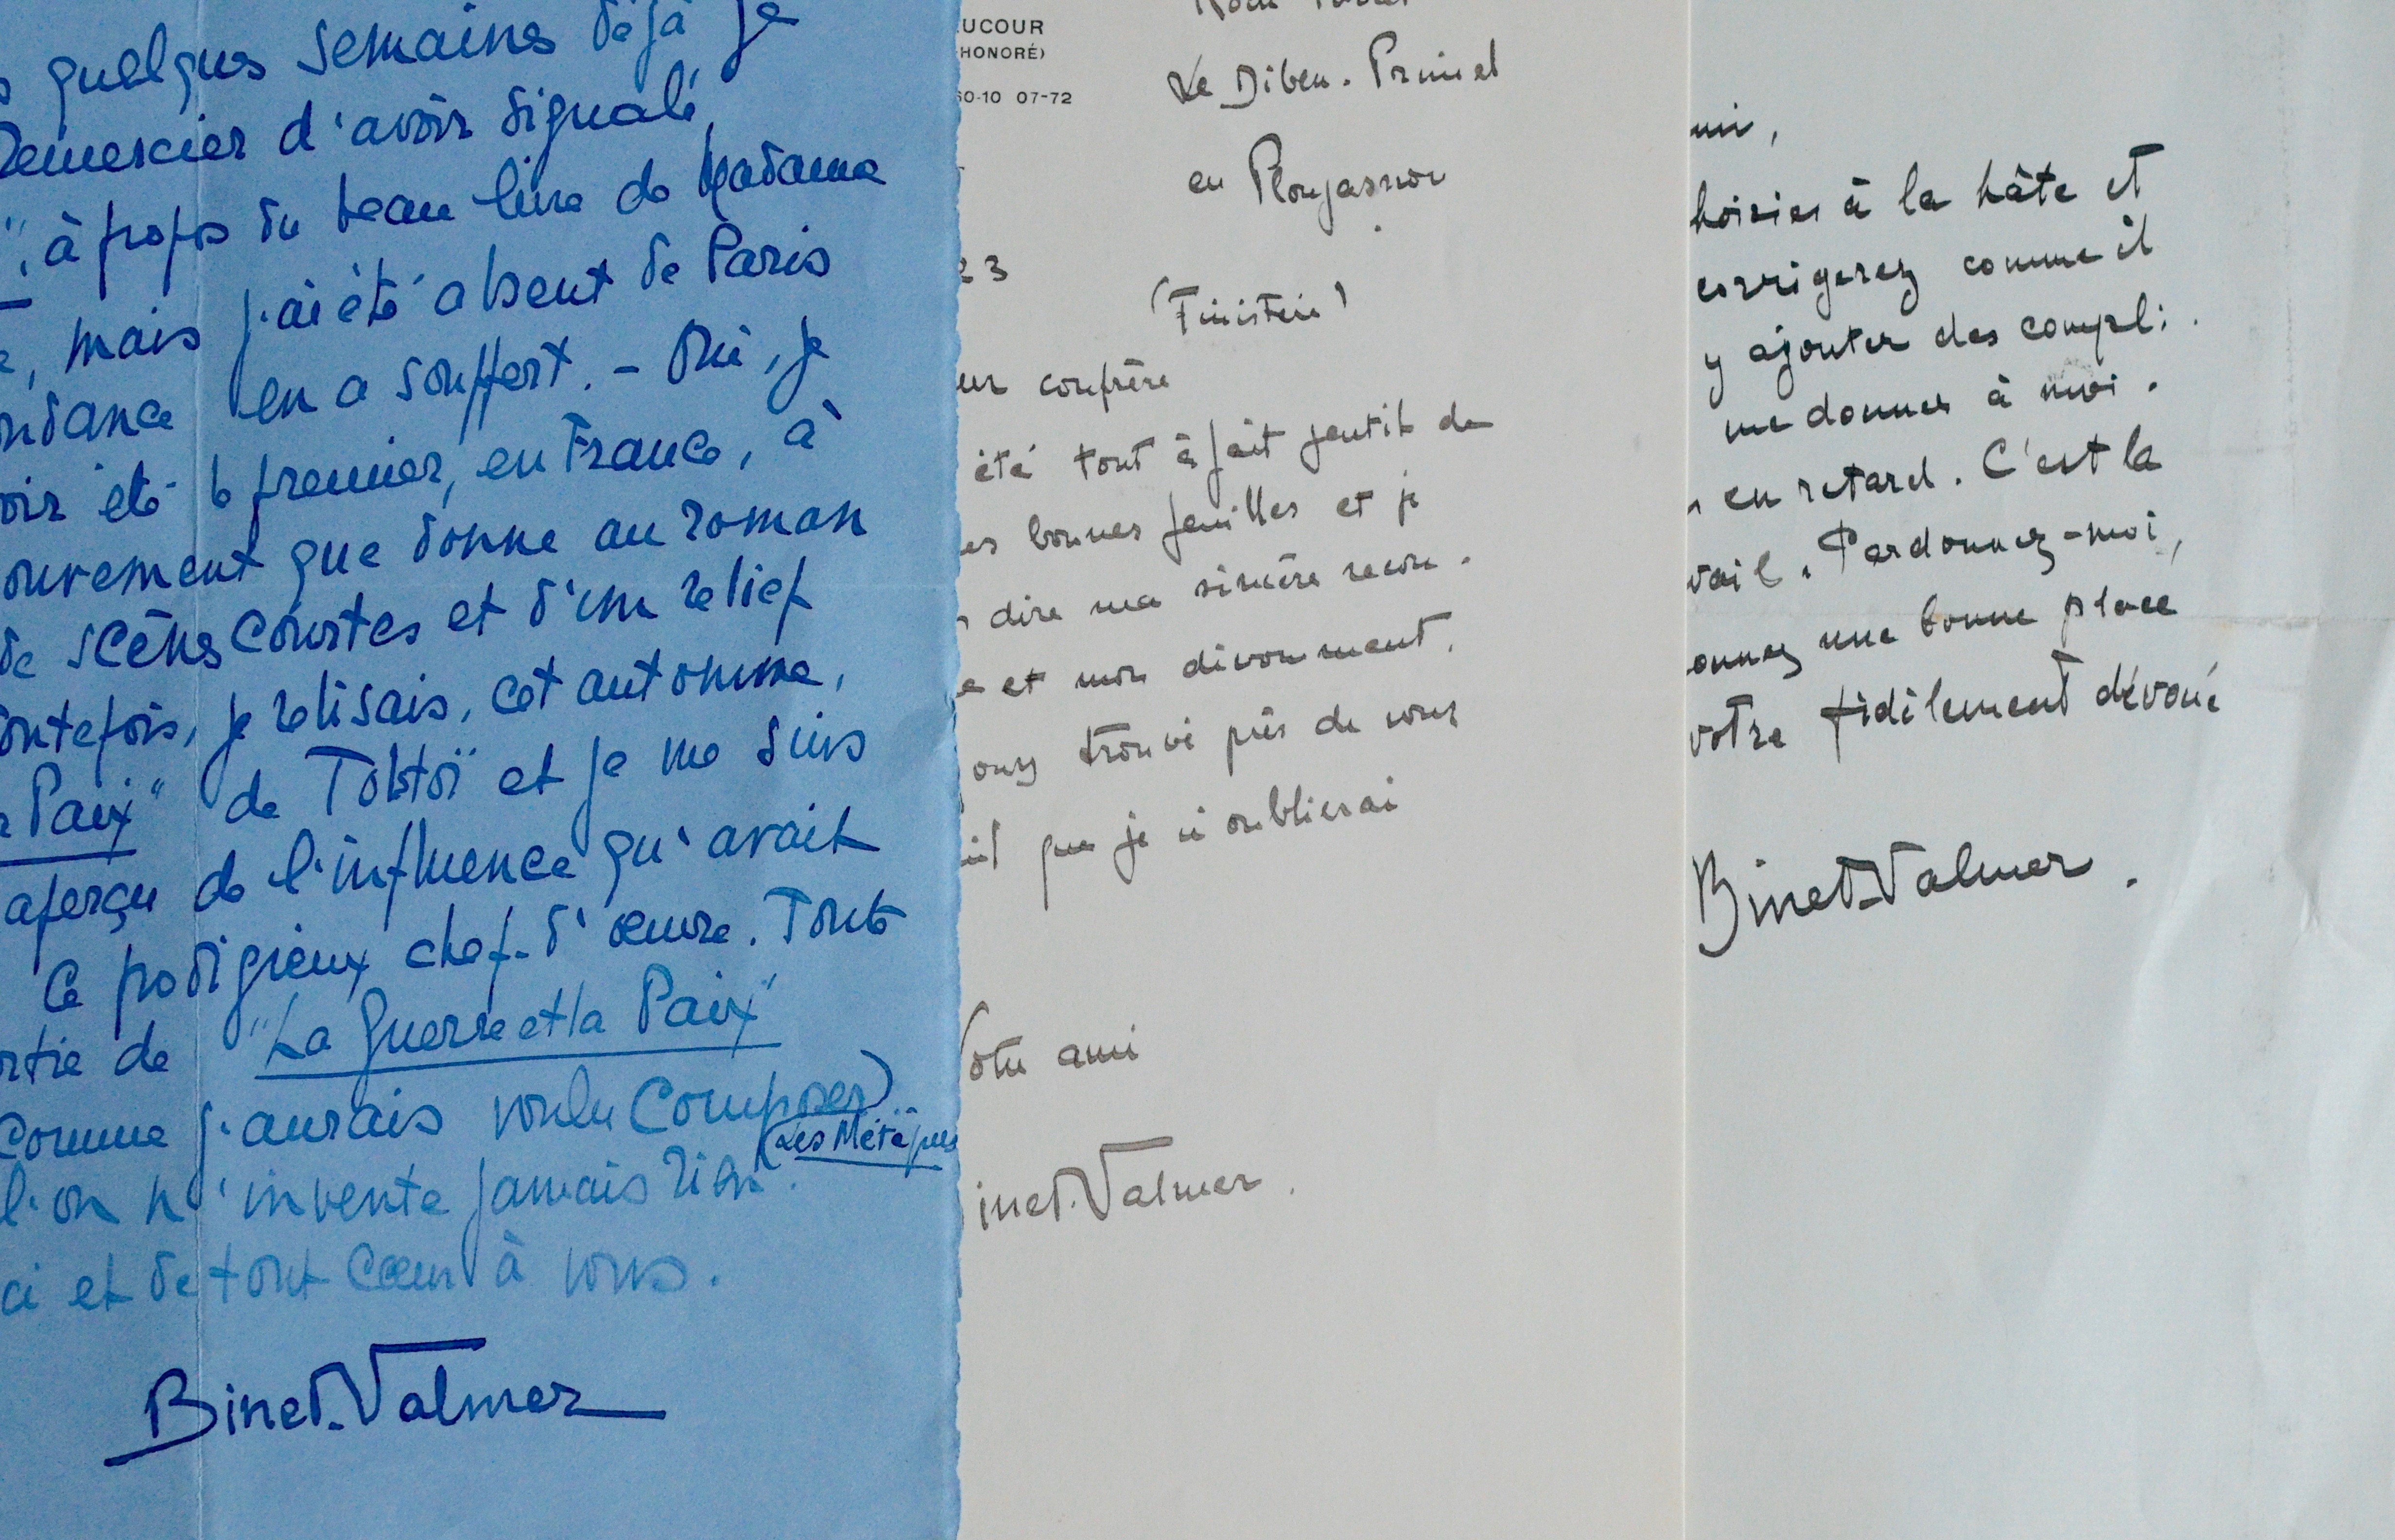 quelques semaines déjà je
remercier d'avoir signalé
", à propos du beau livre de Madame
, mais j'ai été absent de Paris
ondance en a souffert. - Oui, je
oir été le premier, en France, à
ouvement que donne au roman
de scènes courtes et d'un relief
outefois, je relisais, cet automne,
Paix" de Tolstoï et je me suis
aperçu de l'influence qu'avait
ce prodigieux chef-d'œuvre. Toute
rtie de "La Guerre et la Paix"
comme j'aurais voulu composer
(Les Métèques
l'on n'invente jamais rien.
ci et de tout cœur à vous.
Binet-Valmer
UCOUR
HONORÉ)
60-10 07-72
Le Diben. Primel
en Plougasnou
23
(Finistère)
eur confrère
été tout à fait gentil de
es bonnes feuilles et je
dire ma sincère recon.
e et mon dévouement.
ours trouvé près de vous
que je n'oublierai
Votre ami
inet-Valmer.
mi,
hoisies à la hâte et
corrigerez comme il
y ajouter des compli.
me donner à moi.
en retard. C'est la
vail. Pardonnez-moi,
onnez une bonne place
votre fidèlement dévoué
Binet-Valmer.